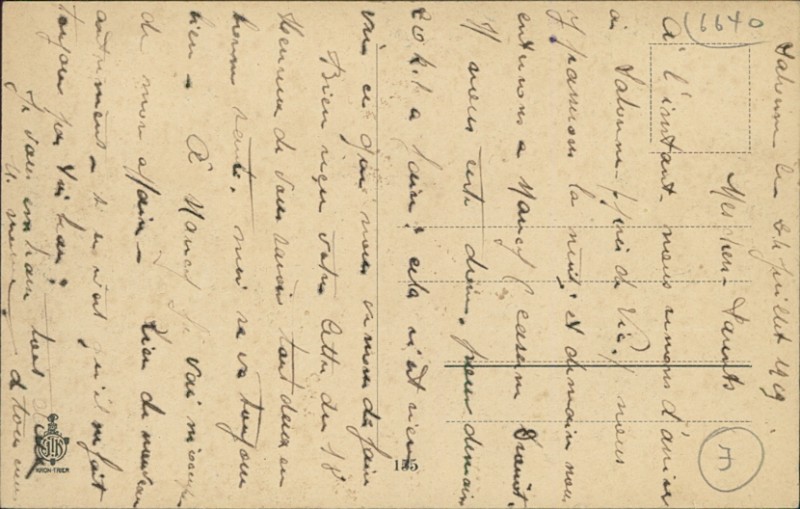 Salonne le 24 juillet 1919
Mes chers Parents
A l'instant nous venons d'arriver
à Salonne près de Vic, nous
y passons la nuit, et demain nous
entrerons à Nancy caserne Drouot.
Il nous reste pour demain
20 kil a faire, cela n'est rien
vu ce que nous venons de faire
Bien reçu votre lettre du 18
heureux de vous savoir tout deux en
bonne santé. moi se va toujours
bien. A Nancy je vai m'occuper
de mon affaire. Rien de nouveau
autrement. 
toujours pas 
Je vous embrasse tous deux
6640
F
155